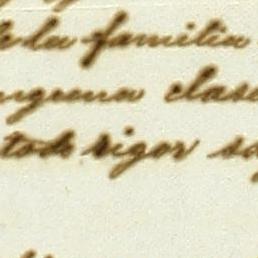 de la familia
nguna clase
todo rigor